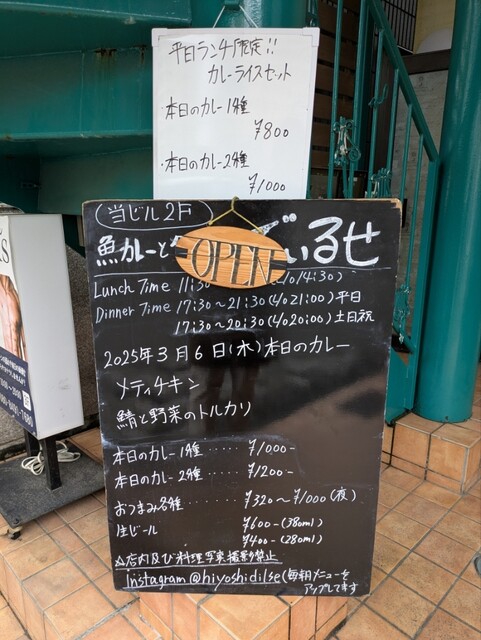 平日ランチ限定!!
カレーライスセット
・本日のカレー1種
¥800
・本日のカレー2種
¥1000
当ビル2F
魚カレーと
OPEN
るせ
Lunch Time 11:30
14:30)
Dinner Time 17:30〜21:30(L/o 21:00)平日
17:30〜20:30(L/o 20:00)土日祝
2025年3月6日(木)本日のカレー
メティチキン
鯖と野菜のトルカリ
本日のカレー1種 ..... ¥1000-
本日のカレー2種 ..... ¥1200-
おつまみ各種 ........ ¥320〜¥1000(夜)
生ビール ¥600-(380ml)
¥400-(280ml)
△店内及び料理写真撮影禁止
Instagram@hiyoshidilse(毎朝メニューを
アップしてます